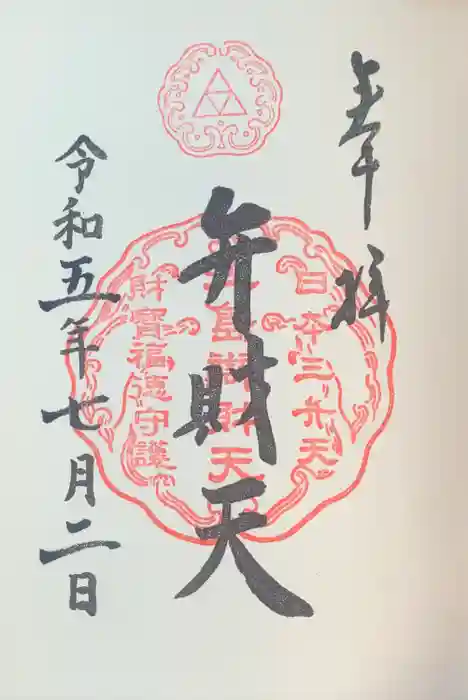 奉拝
弁財天
日本三弁天
島
財天
財寶福徳守護
令和五年七月二日